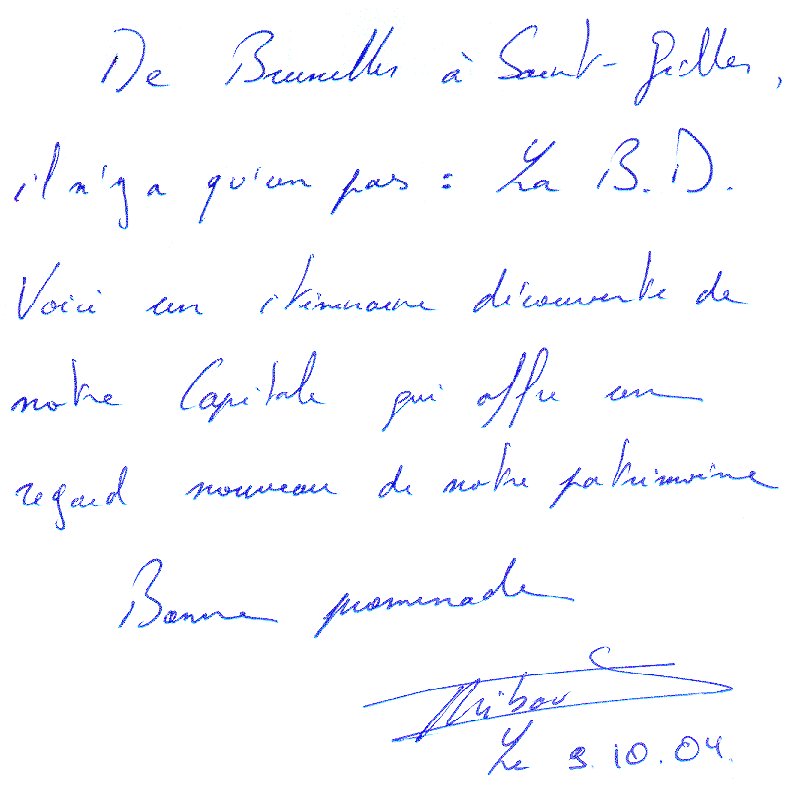 De Bruxelles à Saint-Gilles,
il n'y a qu'un pas : La B.D.
Voici un itinéraire découverte de
notre Capitale qui offre un
regard nouveau de notre patrimoine
Bonne promenade
Le 9.10.04.